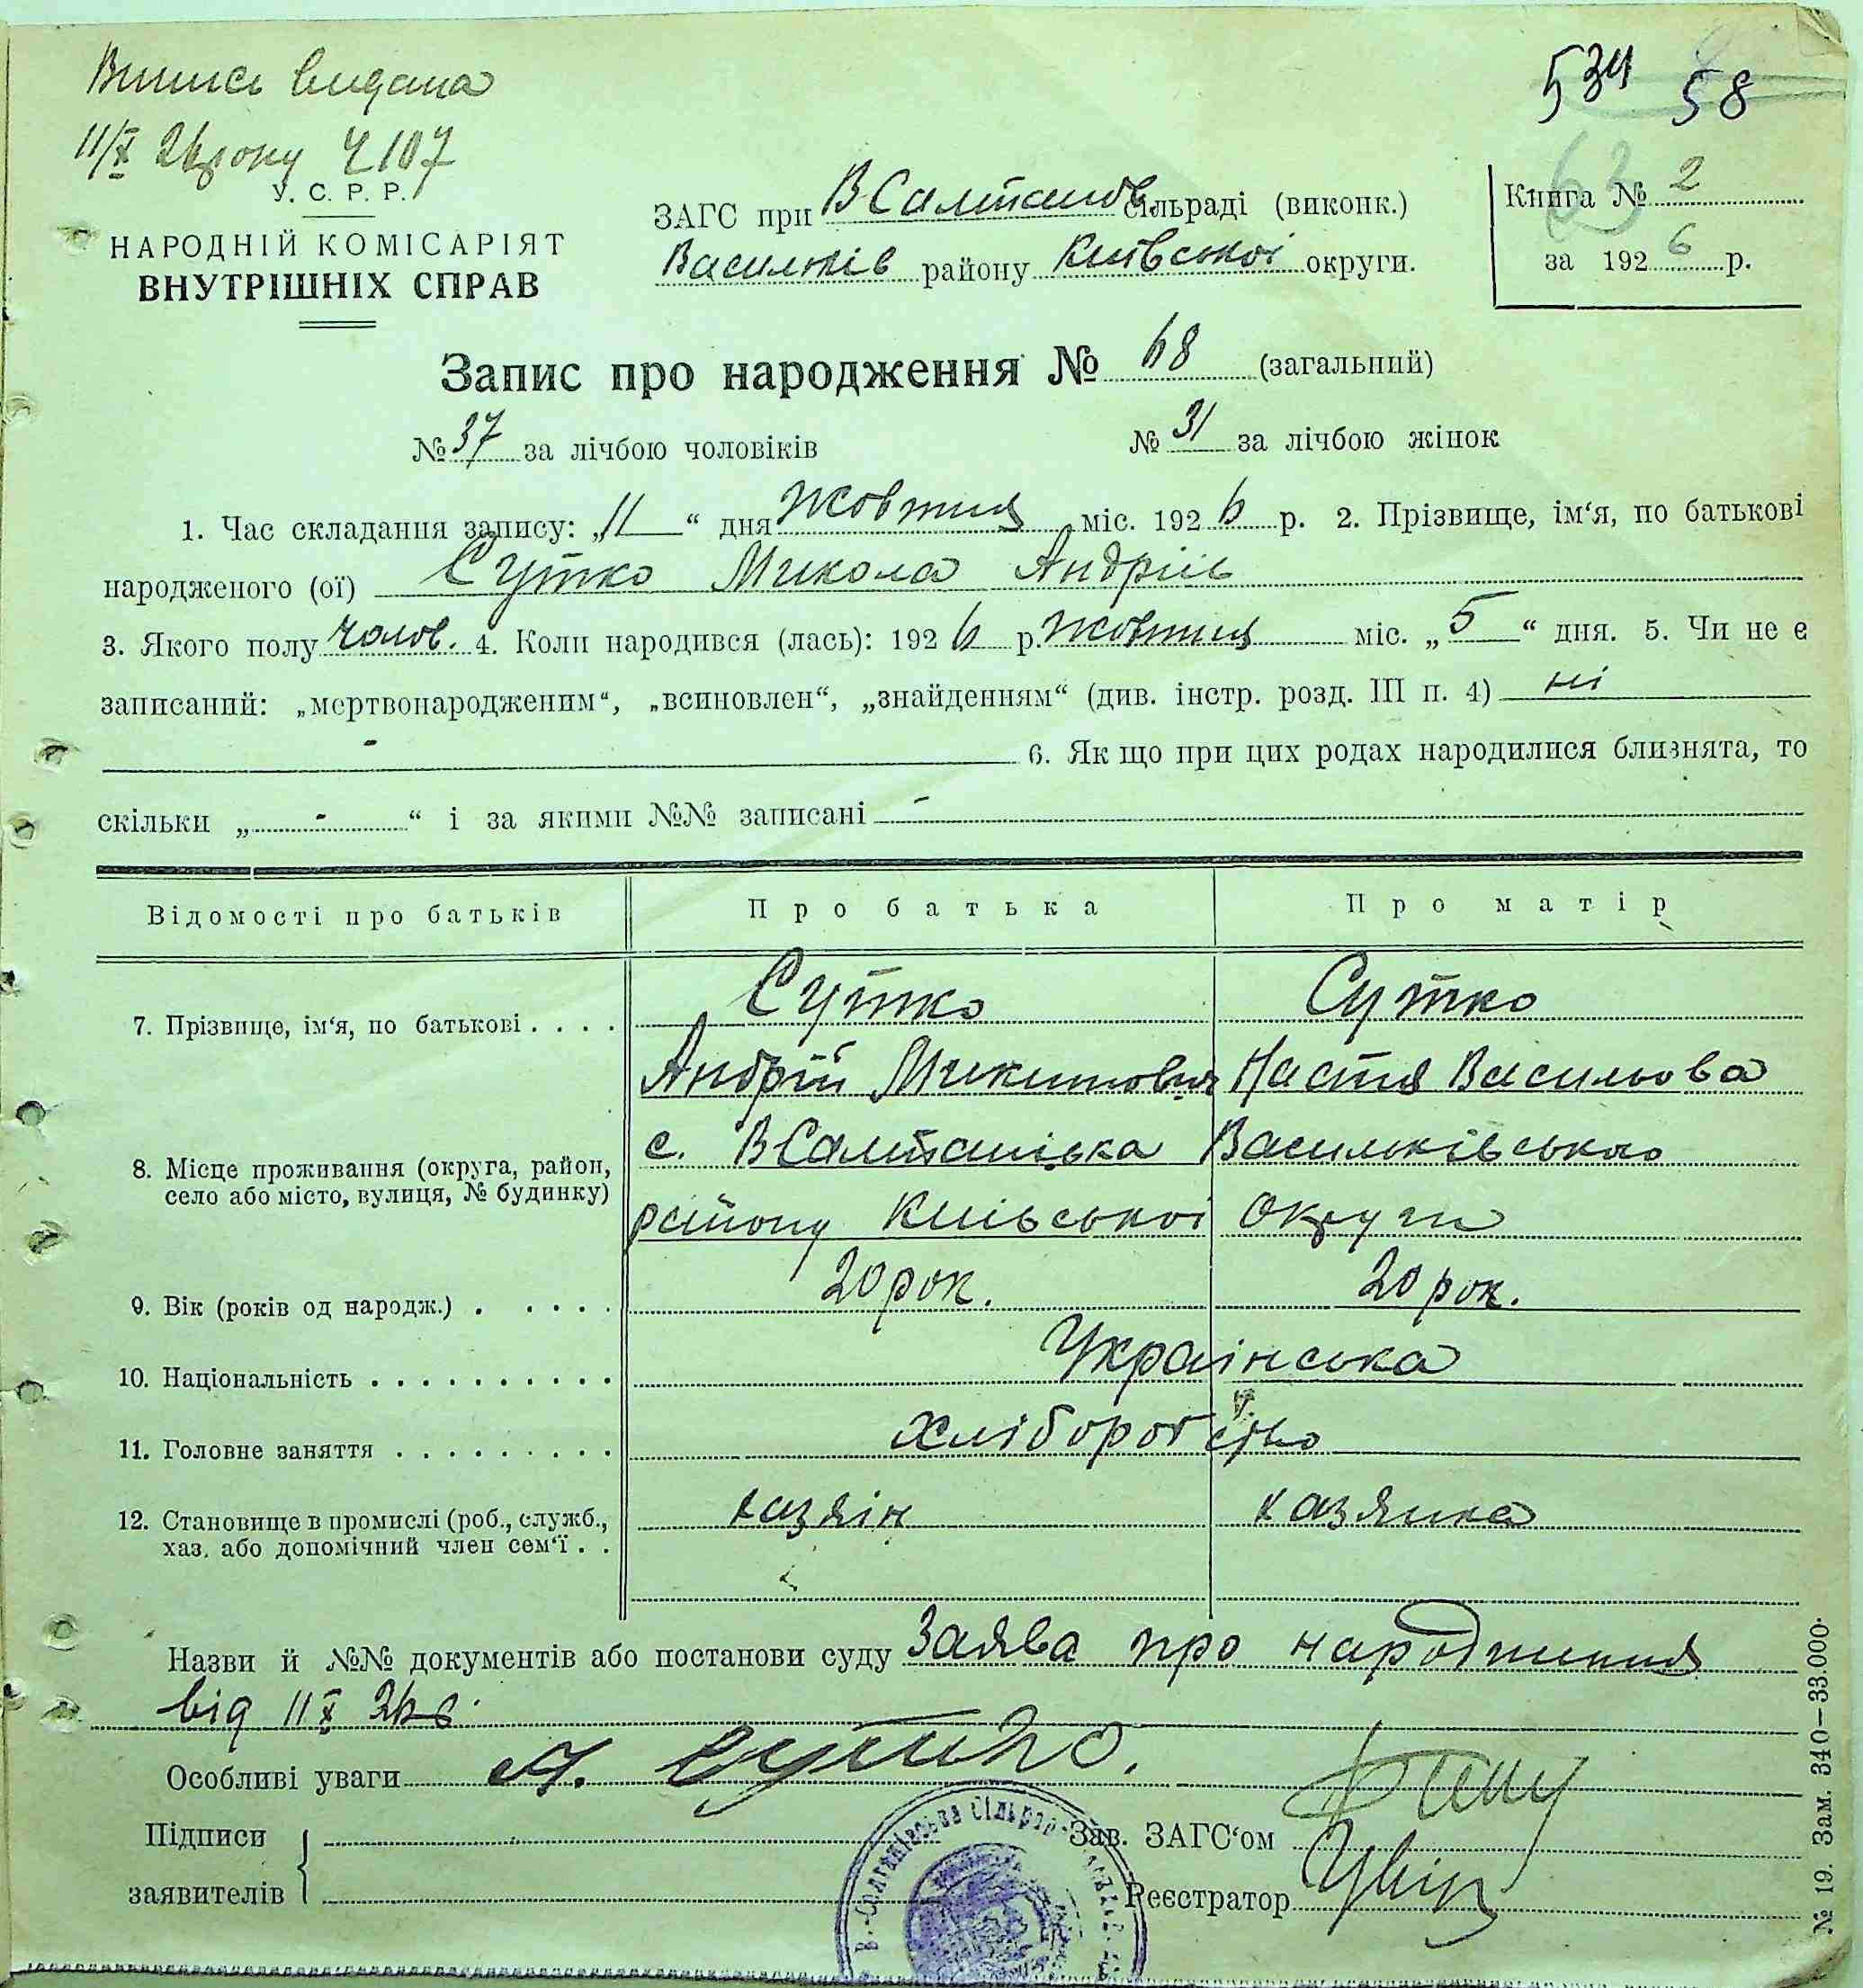 Випись видана
534 58
11/X 26 року Ч 107
63
У. С. Р. Р.
НАРОДНІЙ КОМІСАРІЯТ
ВНУТРІШНІХ СПРАВ
ЗАГС при ВСалтанів. сільраді (виконк.)
Васильків району Київської округи.
Книга № 2
за 1926 р.
Запис про народження № 68 (загальний)
№ 37 за лічбою чоловіків № 31 за лічбою жінок
1. Час складання запису: „11“ дня Жовтня міс. 1926 р. 2. Прізвище, ім‘я, по батькові
народженого (ої) Сутко Микола Андріїв
3. Якого полу чолов. 4. Коли народився (лась): 1926 р. Жовтня міс. „5“ дня. 5. Чи не є
записаний: „мертвонародженим“, „всиновлен“, „знайденням“ (див. інстр. розд. III п. 4) ні
- 6. Як що при цих родах народилися близнята, то
скільки „ - “ і за якими №№ записані -
Відомості про батьків Про батька Про матір
7. Прізвище, ім‘я, по батькові . . . . Сутко Сутко
Андрій Микитович Настя Васильова
8. Місце проживання (округа, район, с. ВСалтанівка Васильківського
село або місто, вулиця, № будинку)
району Київської округи
9. Вік (років од народж.) . . . . . 20 рок. 20 рок.
10. Національність . . . . . . . . . . Українська
11. Головне заняття . . . . . . . . . Хліборобство
12. Становище в промислі (роб., служб., хазяін хазяика
хаз. або допомічний член сем‘ї . .
Назви й №№ документів або постанови суду Заява про народження
від 11 X 26 р.
Особливі уваги А. Сутко.
Підписи Зав. ЗАГС‘ом
заявителів Реєстратор
№ 19. Зам. 340—33.000.